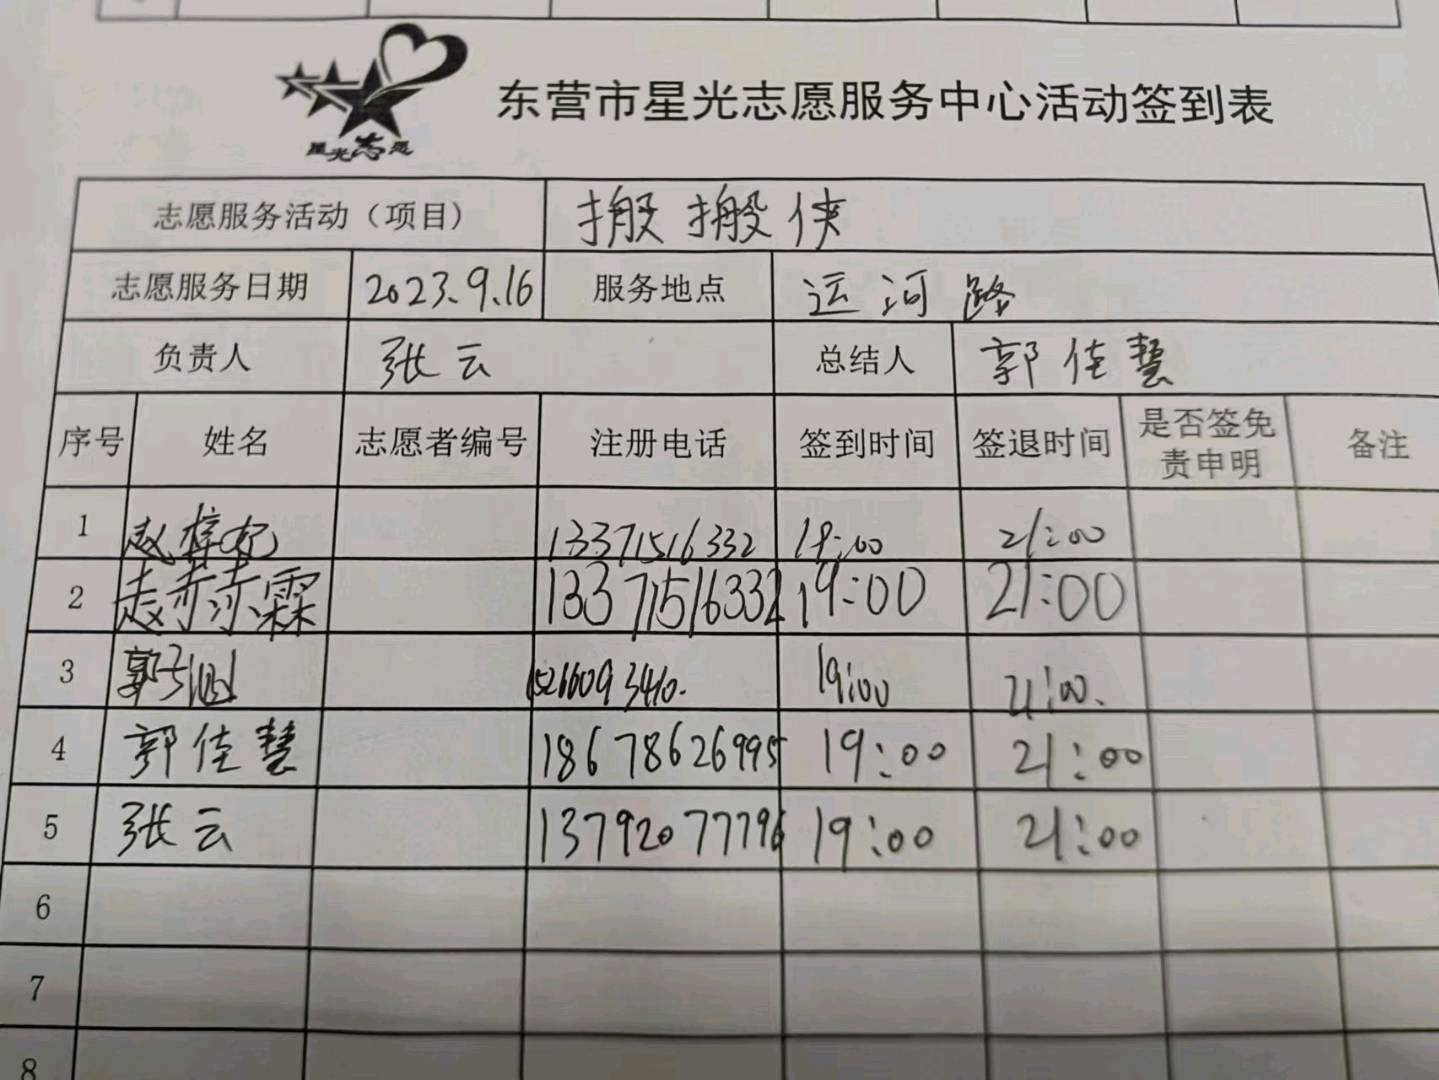 星光志愿
东营市星光志愿服务中心活动签到表
志愿服务活动（项目） 搬搬侠
志愿服务日期 2023.9.16 服务地点 运河路
负责人 张云 总结人 郭佳慧
序号 姓名 志愿者编号 注册电话 签到时间 签退时间 是否签免责申明 备注
1 赵梓 13371516332 19:00 21:00
2 赫霖 13371516332 19:00 21:00
3 郭 15266093410. 19:00 21:00.
4 郭佳慧 18678626995 19:00 21:00
5 张云 13792077796 19:00 21:00
6
7
8